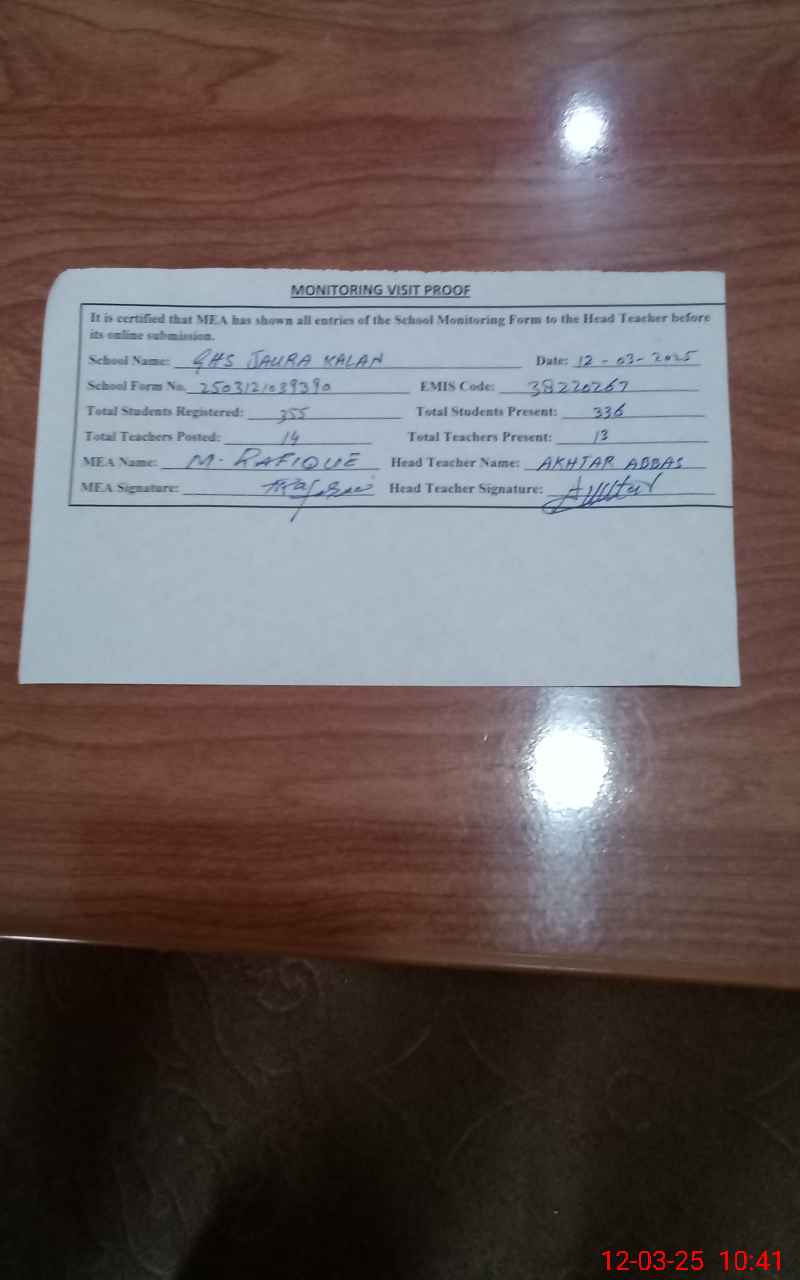 MONITORING VISIT PROOF
It is certified that MEA has shown all entries of the School Monitoring Form to the Head Teacher before
its online submission.
School Name: GHS JAURA KALAN Date: 12-03-2025
School Form No. 2503121039390 EMIS Code: 38220267
Total Students Registered: 355 Total Students Present: 336
Total Teachers Posted: 14 Total Teachers Present: 13
MEA Name: M. RAFIQUE Head Teacher Name: AKHTAR ABBAS
MEA Signature: Head Teacher Signature:
12-03-25 10:41